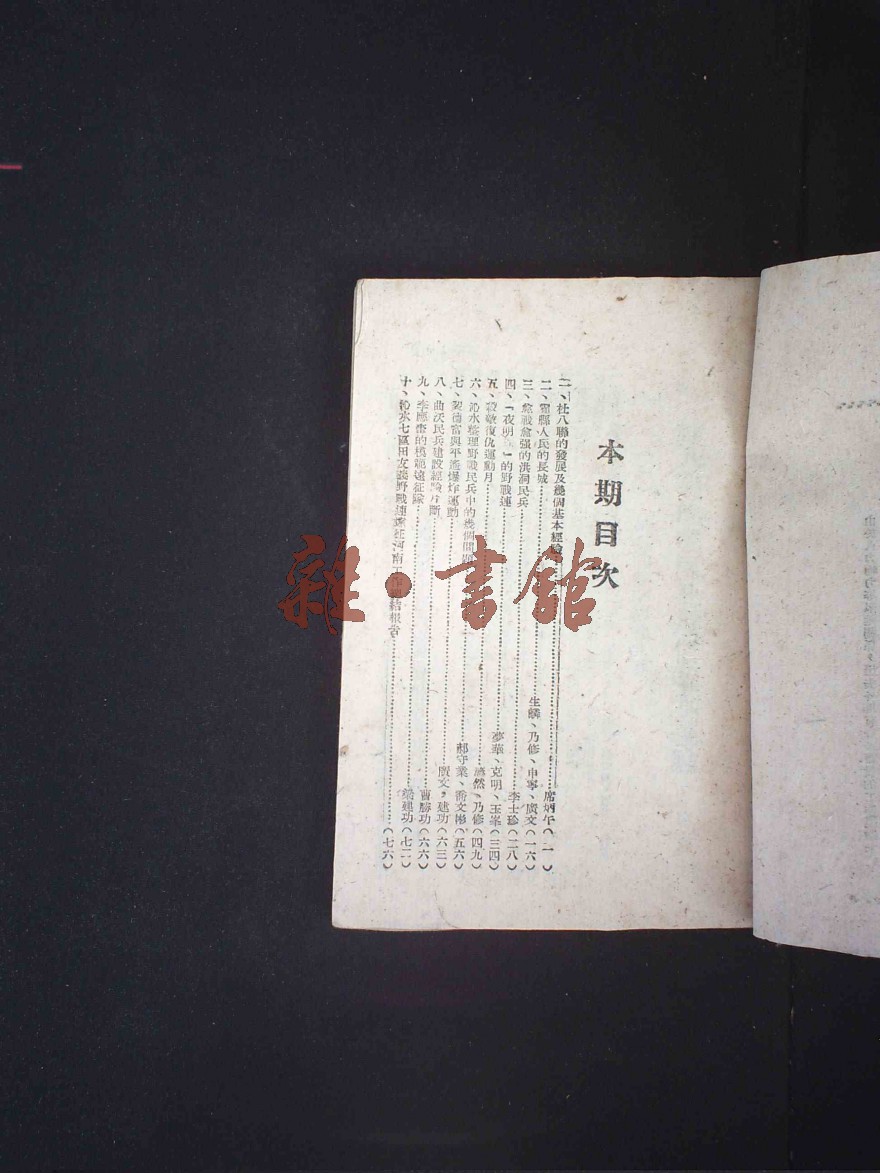 本期目次
一、杜八聯的發展及幾個基本經驗……席炳午(一)
二、霍縣人民的長城……生麟、乃修、申寧、廣文(一六)
三、愈戰愈强的洪洞民兵……李士珍(二八)
四、「夜明」的野戰連……夢華、克明、玉峯(三四)
五、殺敵復仇運動月……然、乃修(四九)
六、沁水整理野戰民兵中的幾個問題……郝守業、喬文彬(五六)
七、德富與平遙爆炸運動……廣文、建功(六三)
八、曲沃民兵建設經驗片斷……曹勝功(六六)
九、李應奎的模範遠征隊……梁建功(七二)
十、沁水七區田友義野戰連遠征河南工作總結報告……(七六)
雜·書館